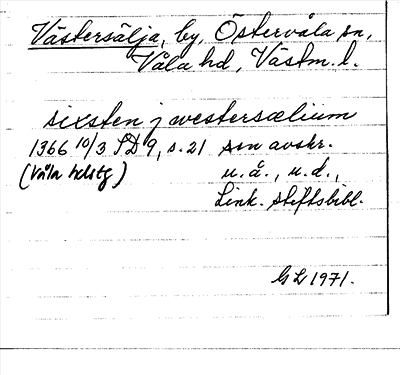 Västersälja, by, Östervåla sn,
Våla hd, Västm. l.
sixsten j westersœlium
1366 10/3 SD 9, s. 21 som avskr.
(Våla hdstg) u. å., u. d.,
Link. stiftsbibl.
GL 1971.